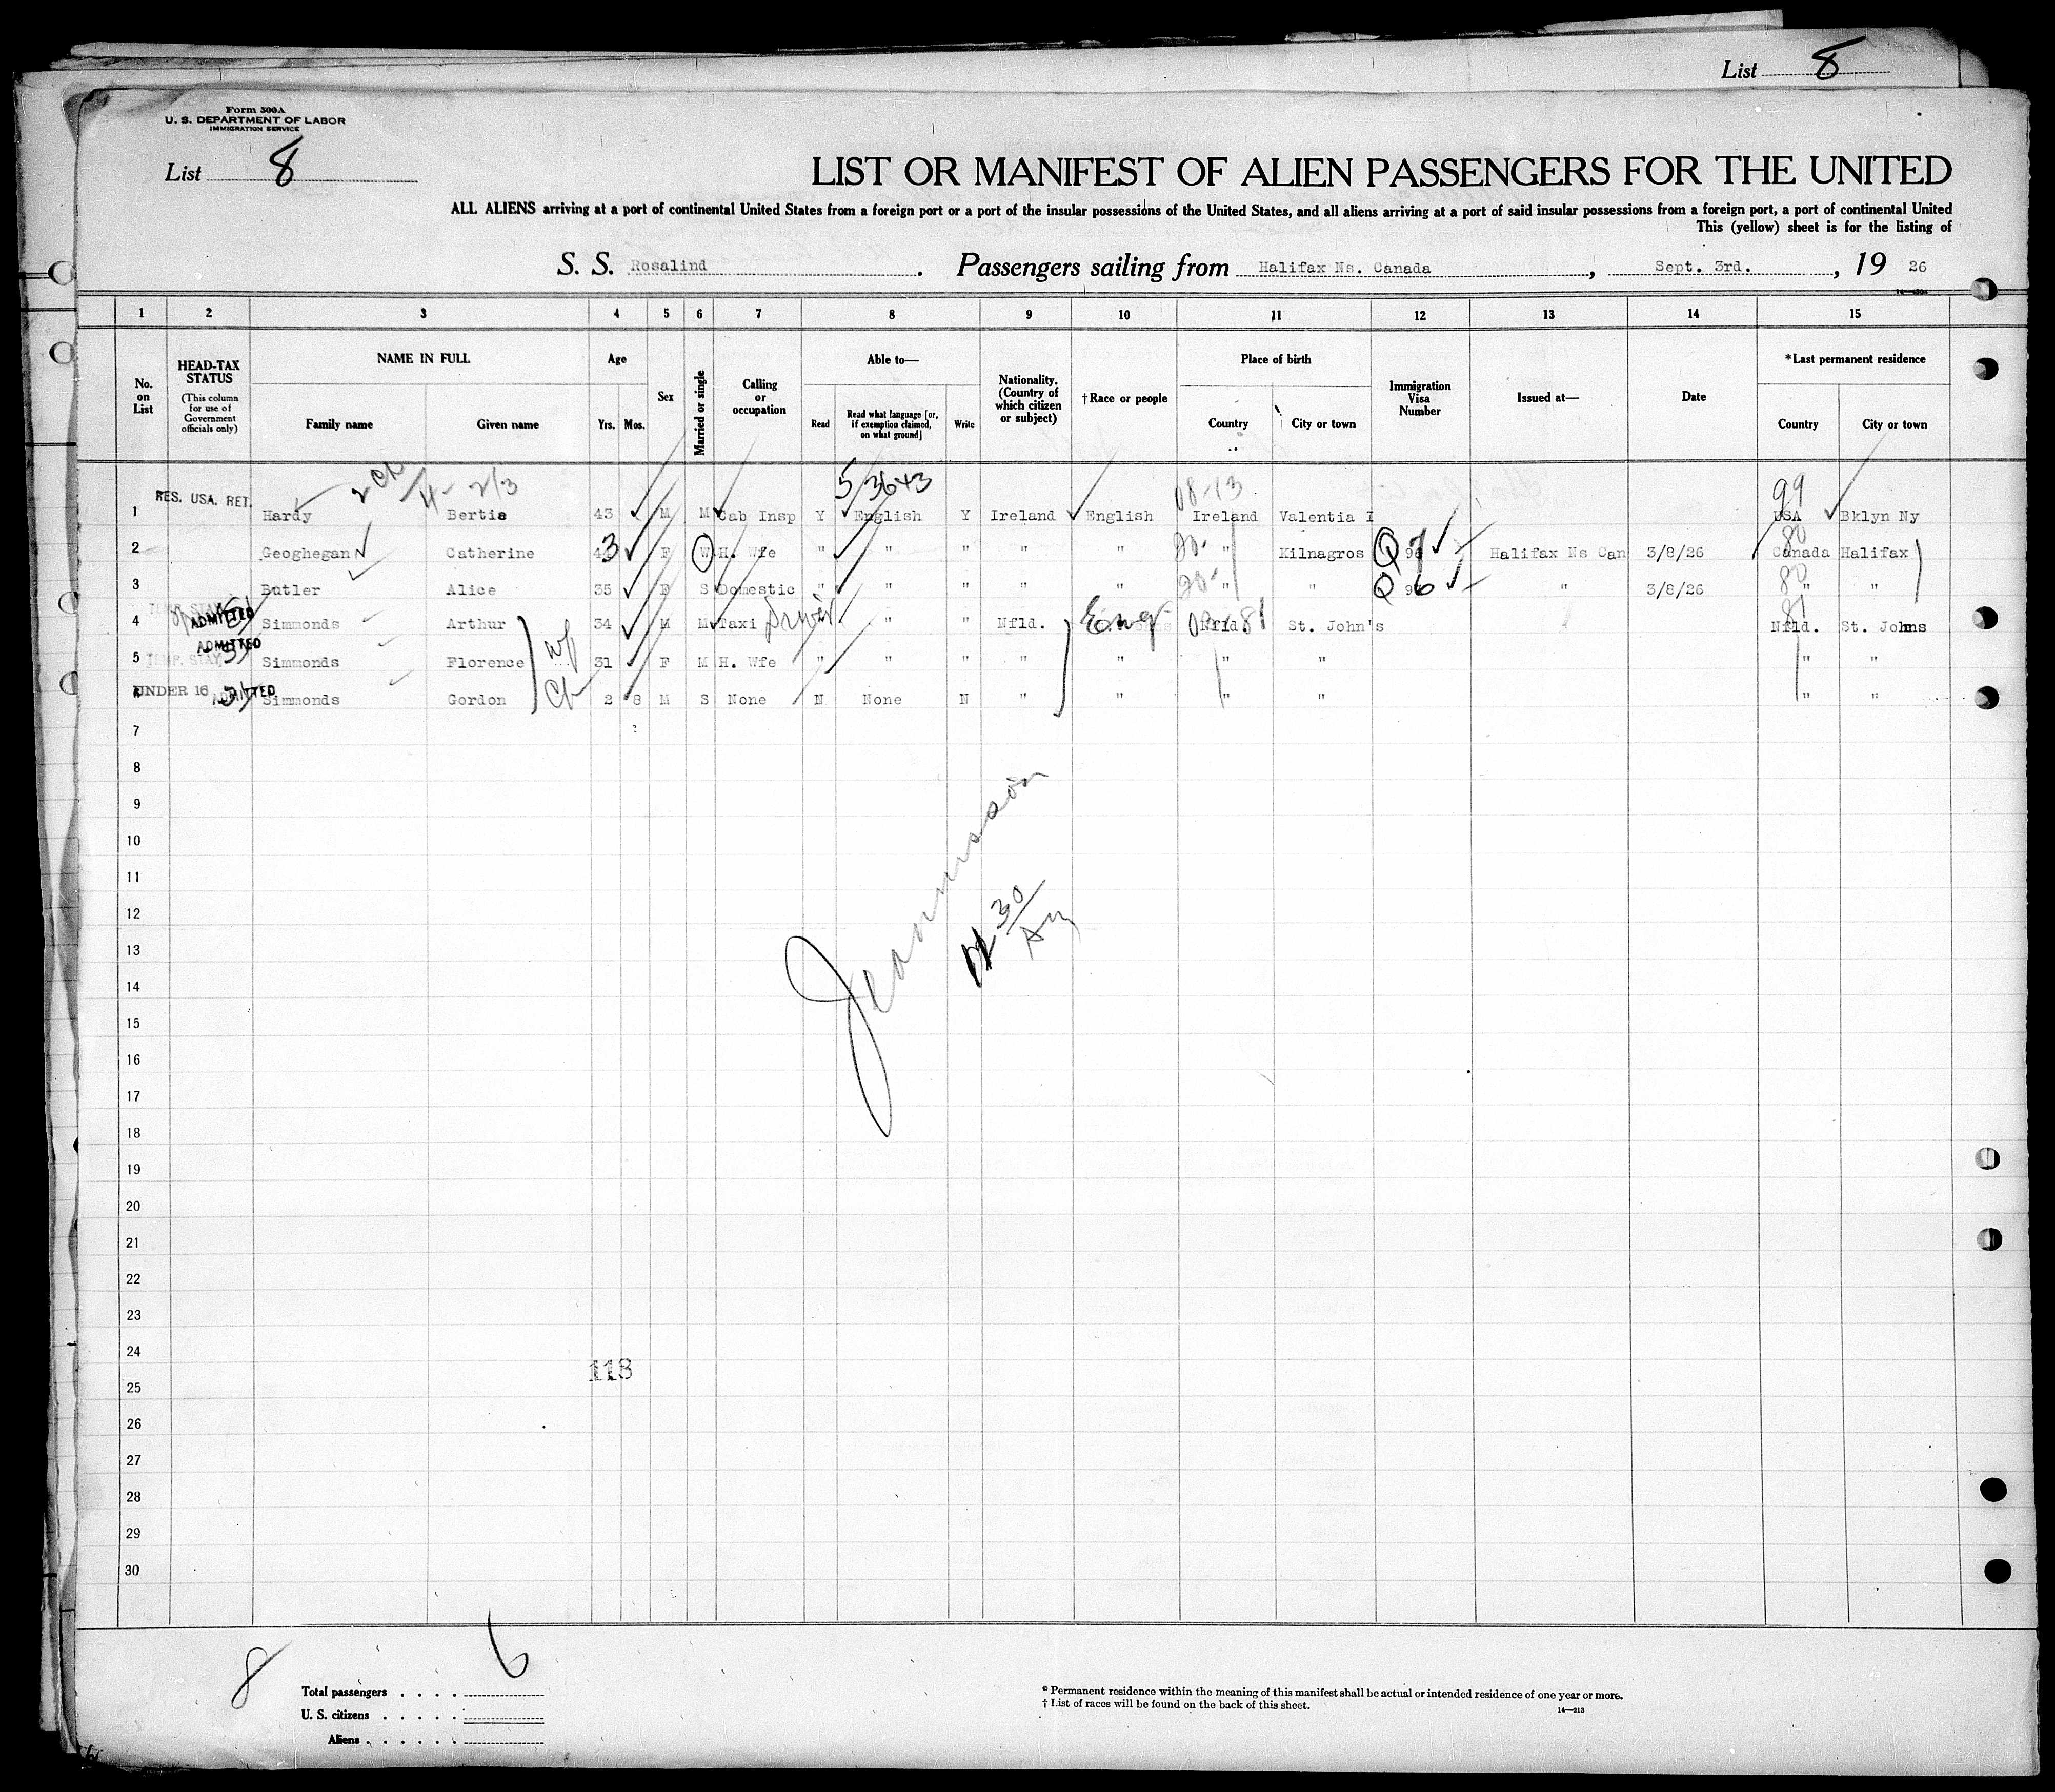 List 8
Form 500A
U. S. DEPARTMENT OF LABOR
IMMIGRATION SERVICE
List 8
LIST OR MANIFEST OF ALIEN PASSENGERS FOR THE UNITED
ALL ALIENS arriving at a port of continental United States from a foreign port or a port of the insular possessions of the United States, and all aliens arriving at a port of said insular possessions from a foreign port, a port of continental United
This (yellow) sheet is for the listing of
S. S. Rosalind. Passengers sailing from Halifax Ns. Canada, Sept. 3rd., 19 26
1 2 3 4 5 6 7 8 9 10 11 12 13 14 15
No. on List
HEAD-TAX STATUS (This column for use of Government officials only)
NAME IN FULL
Family name Given name
Age
Yrs. Mos.
Sex
Married or single
Calling or occupation
Able to—
Read
Read what language [or, if exemption claimed, on what ground]
Write
Nationality. (Country of which citizen or subject)
† Race or people
Place of birth
Country City or town
Immigration Visa Number
Issued at—
Date
*Last permanent residence
Country City or town
5 3643 08-13 99
1 RES. USA. RET. Hardy Bertie 43 M M Cab Insp Y English Y Ireland English Ireland Valentia I USA Bklyn Ny
80
2 Geoghegan Catherine 43 F W H. Wfe " " " " " " Kilnagros Q 97 Halifax Ns Can 3/8/26 Canada Halifax
3 Butler Alice 35 F S Domestic " " " " " " " Q 96 " 3/8/26 80 " "
4 TEMP. STAY ADMITTED Simmonds Arthur 34 M M Taxi Driver " " " Nfld. Eng Nfld. 81 St. John's 81 Nfld. St. Johns
5 TEMP. STAY ADMITTED Simmonds Florence wf 31 F M H. Wfe " " " " " " " " "
6 UNDER 16 ADMITTED Simmonds Gordon Ch 2 8 M S None N None N " " " " " "
7
8
9
10
11
12
13
14
15
16
17
18
19
20
21
22
23
24
118
25
26
27
28
29
30
8
6
Total passengers . . . .
U. S. citizens . . . . .
Aliens . . . . . .
* Permanent residence within the meaning of this manifest shall be actual or intended residence of one year or more.
† List of races will be found on the back of this sheet.
14—213